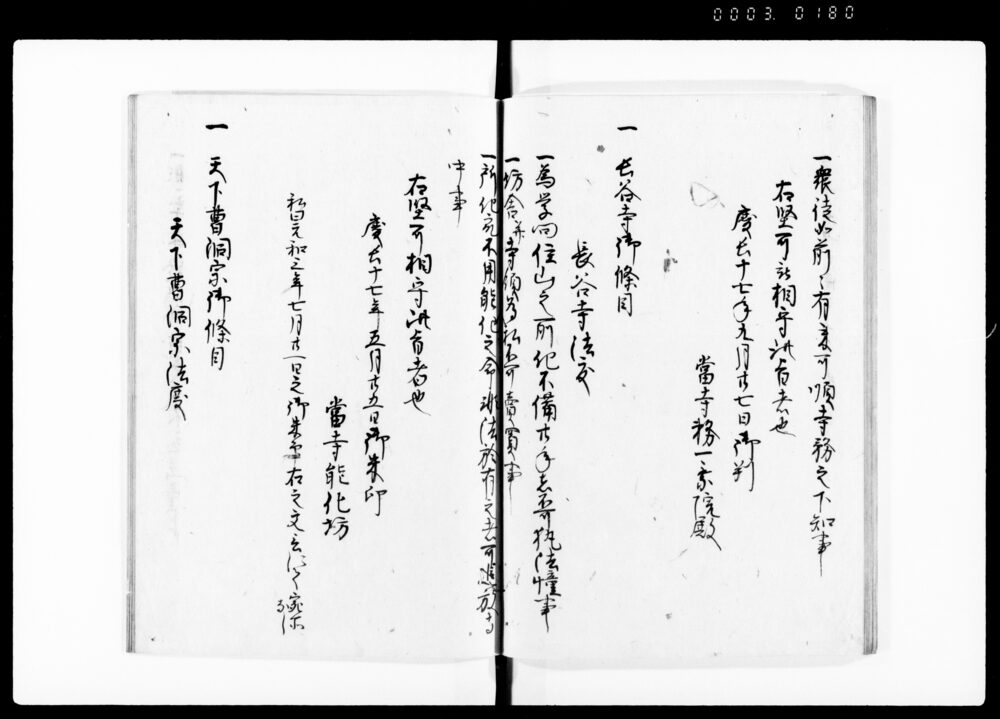 0003. 0180
一衆徒如前々有来可順寺務之下知事
右堅可被相守此旨者也
慶長十七年九月廿七日御判
當寺務一乗院殿
一 長谷寺御條目
長谷寺法度
一為学问住山之所化不備廿年者不可執法幢事
一坊舎并寺領為私不可賣買事
一所化宛不用能化之命非法於有之者可追放寺
中事
右堅可相守此旨者也
慶長十七年五月廿五日御朱印
當寺能化坊
私曰元和三年七月廿一日之御朱印右之文言
一 天下曹洞宗御條目
天下曹洞宗法度